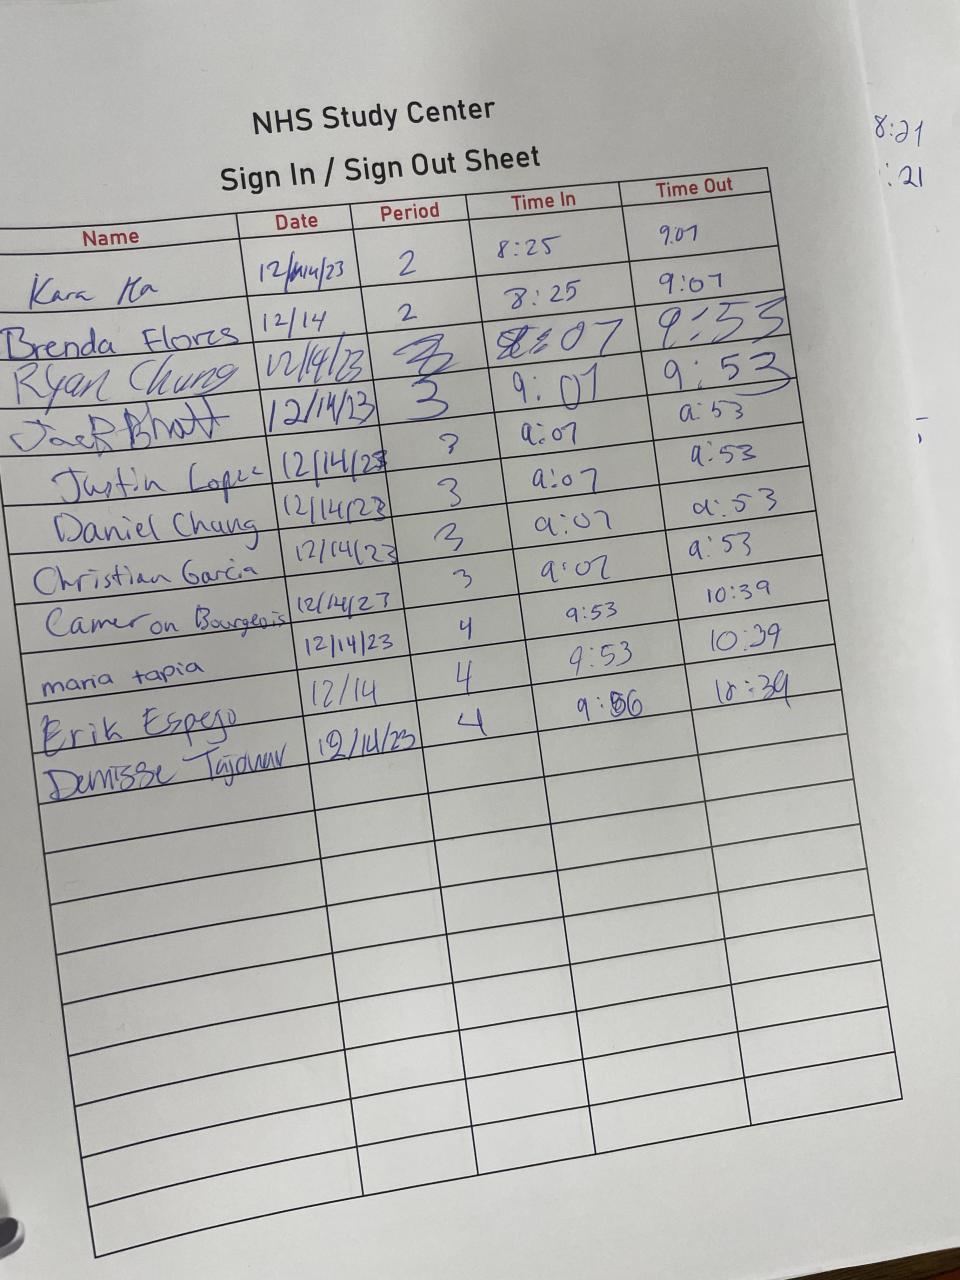 NHS Study Center
Sign In / Sign Out Sheet
8:21
:21
Name Date Period Time In Time Out
Kara Ha 12/14/23 2 8:25 9:07
Brenda Flores 12/14 2 8:25 9:07
Ryan Chung 12/14/23 3 :07 9:53
Jack Bhatt 12/14/23 3 9:07 9:53
Justin Lopez 12/14/23 3 9:07 9:53
Daniel Chang 12/14/23 3 9:07 9:53
Christian Garcia 12/14/23 3 9:07 9:53
Cameron Bourgeois 12/14/23 3 9:07 9:53
maria tapia 12/14/23 4 9:53 10:39
Erik Espejo 12/14 4 9:53 10:39
Denisse 12/14/23 4 9:56 10:39